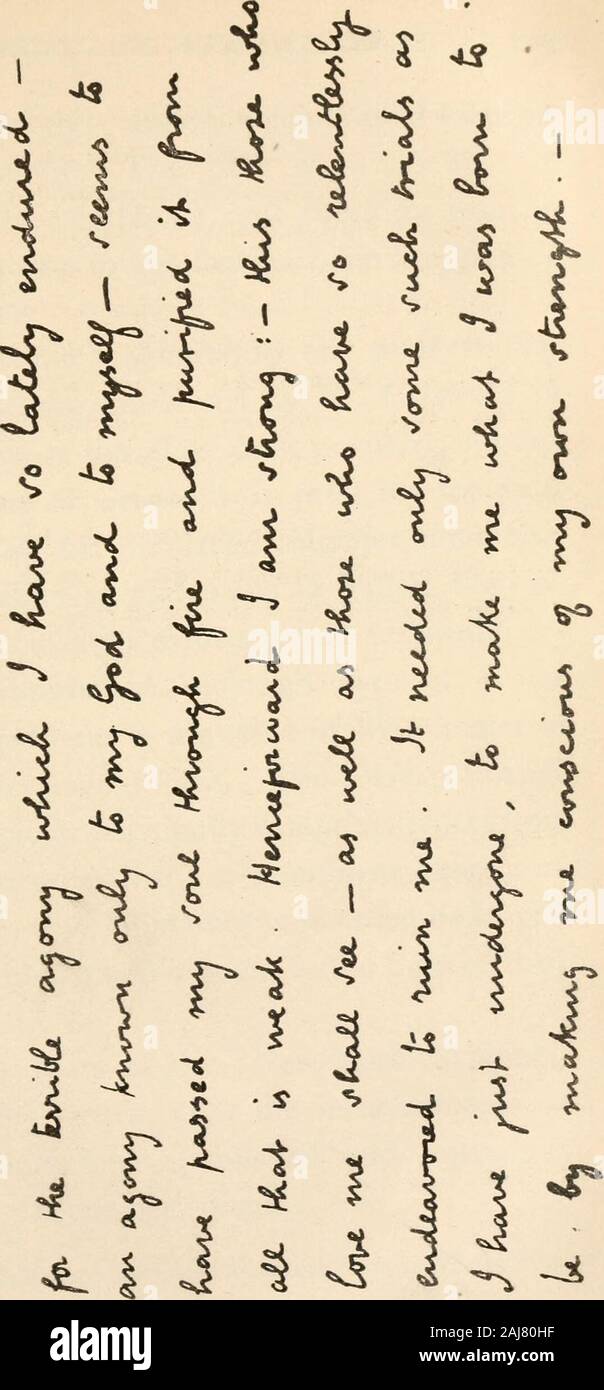 for the terrible agony which I have so lately endured —
an agony known only to my God and to myself — seems to
have passed my soul through fire and purified it from
all that is weak. Henceforward I am strong : — this those who
love me shall see — as well as those who have so relentlessly
endeavored to ruin me. It needed only some such trials as
I have just undergone, to make me what I was born to
be, by making me conscious of my own strength. —
alamy
Image ID: 2AJ80HF
www.alamy.com